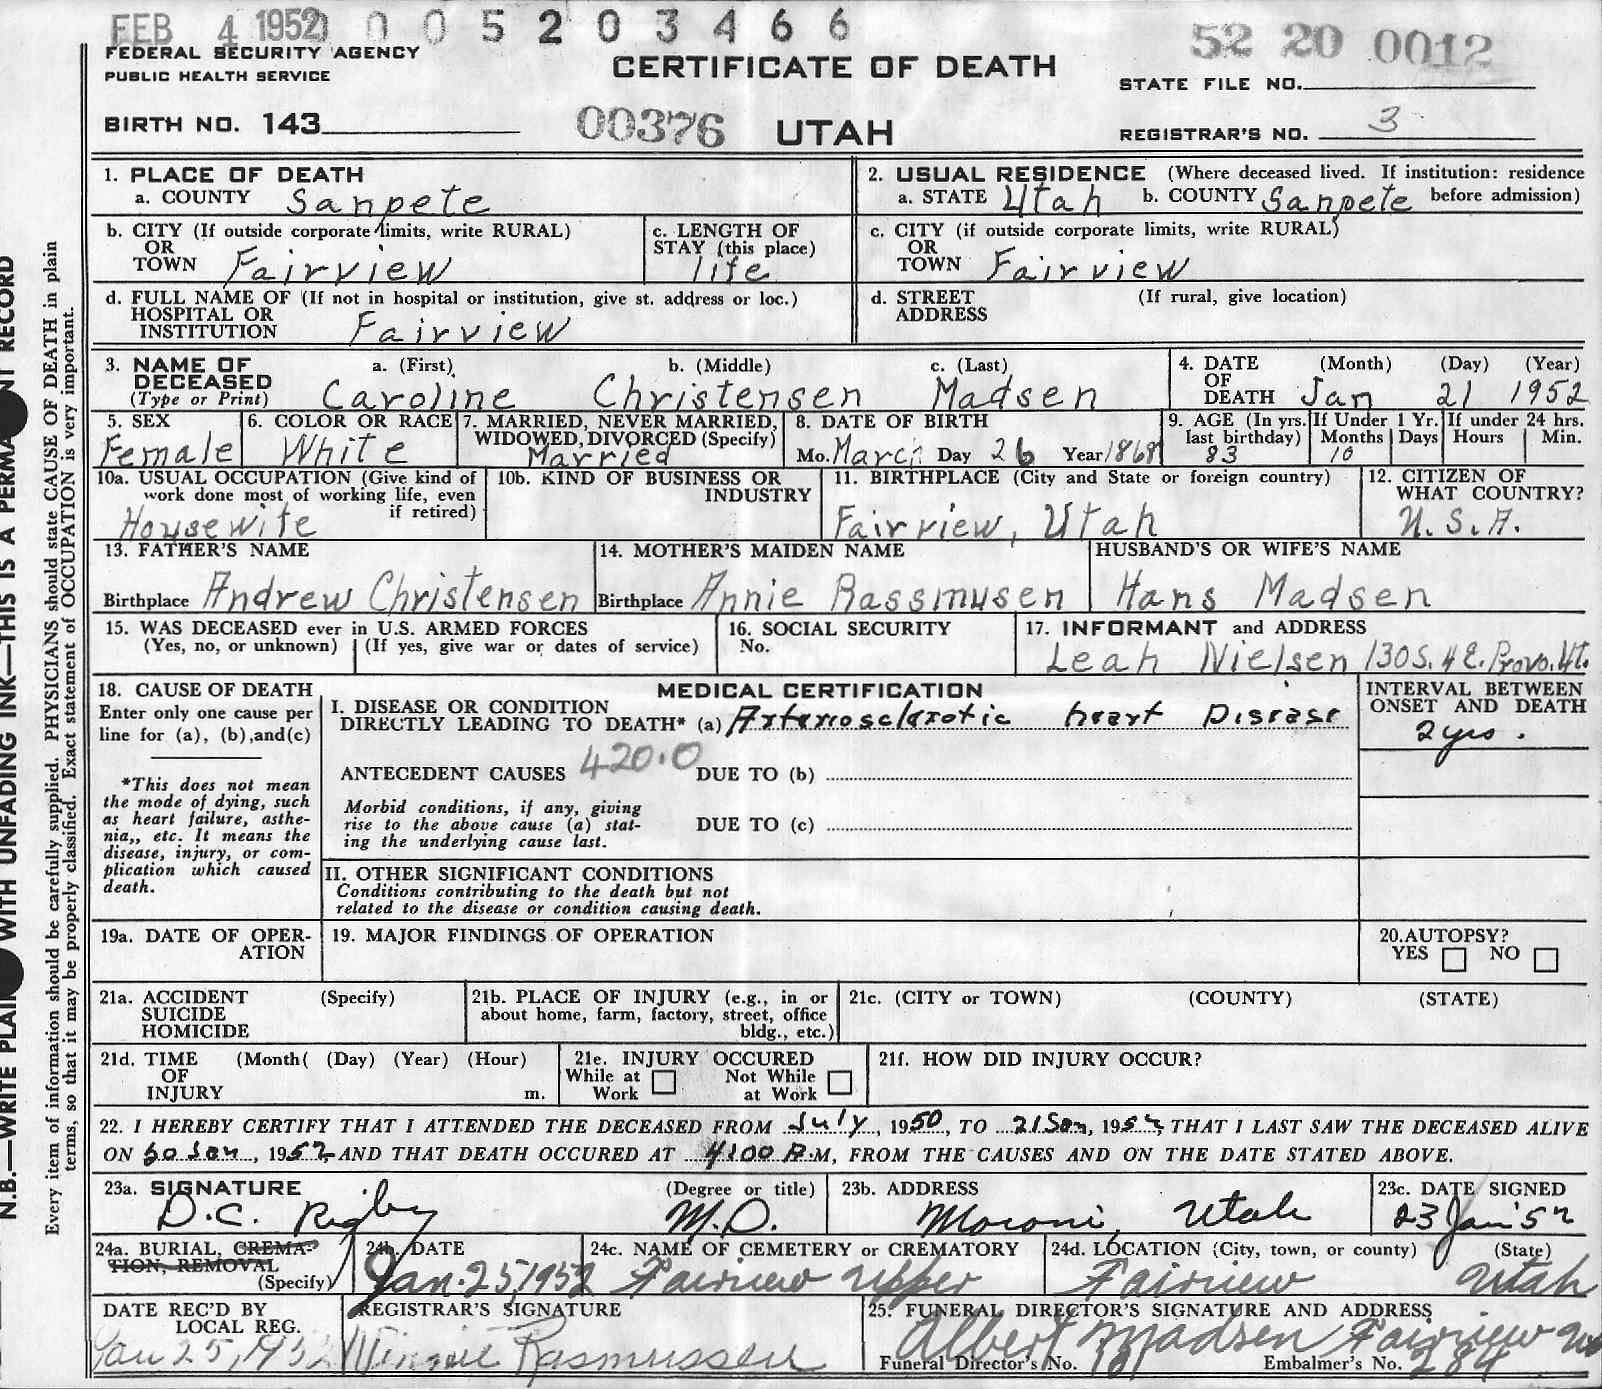 FEB 4 1952 0 0 5 2 0 3 4 6 6
52 20 0012
FEDERAL SECURITY AGENCY
PUBLIC HEALTH SERVICE
CERTIFICATE OF DEATH
STATE FILE NO.
BIRTH NO. 143
00376 UTAH
REGISTRAR'S NO. 3
1. PLACE OF DEATH
a. COUNTY Sanpete
2. USUAL RESIDENCE (Where deceased lived. If institution: residence
a. STATE Utah b. COUNTY Sanpete before admission)
b. CITY (If outside corporate limits, write RURAL)
OR
TOWN Fairview
c. LENGTH OF
STAY (this place)
life
c. CITY (if outside corporate limits, write RURAL)
OR
TOWN Fairview
d. FULL NAME OF (If not in hospital or institution, give st. address or loc.)
HOSPITAL OR
INSTITUTION Fairview
d. STREET (If rural, give location)
ADDRESS
3. NAME OF a. (First) b. (Middle) c. (Last)
DECEASED
(Type or Print) Caroline Christensen Madsen
4. DATE (Month) (Day) (Year)
OF
DEATH Jan 21 1952
5. SEX
Female
6. COLOR OR RACE
White
7. MARRIED, NEVER MARRIED,
WIDOWED, DIVORCED (Specify)
Married
8. DATE OF BIRTH
Mo. March Day 26 Year 1868
9. AGE (In yrs.
last birthday)
83
If Under 1 Yr.
Months Days
10
If under 24 hrs.
Hours Min.
10a. USUAL OCCUPATION (Give kind of
work done most of working life, even
if retired)
Housewife
10b. KIND OF BUSINESS OR
INDUSTRY
11. BIRTHPLACE (City and State or foreign country)
Fairview, Utah
12. CITIZEN OF
WHAT COUNTRY?
U.S.A.
13. FATHER'S NAME
Birthplace Andrew Christensen
14. MOTHER'S MAIDEN NAME
Birthplace Annie Rassmusen
HUSBAND'S OR WIFE'S NAME
Hans Madsen
15. WAS DECEASED ever in U.S. ARMED FORCES
(Yes, no, or unknown) (If yes, give war or dates of service)
16. SOCIAL SECURITY
No.
17. INFORMANT and ADDRESS
Leah Nielsen 130 S. 4 E. Provo. Ut.
18. CAUSE OF DEATH
Enter only one cause per
line for (a), (b), and (c)
*This does not mean
the mode of dying, such
as heart failure, asthe-
nia,, etc. It means the
disease, injury, or com-
plication which caused
death.
MEDICAL CERTIFICATION
I. DISEASE OR CONDITION
DIRECTLY LEADING TO DEATH* (a) Arteriosclerotic heart Disease
ANTECEDENT CAUSES 420.0 DUE TO (b)
Morbid conditions, if any, giving
rise to the above cause (a) stat-
ing the underlying cause last.
DUE TO (c)
II. OTHER SIGNIFICANT CONDITIONS
Conditions contributing to the death but not
related to the disease or condition causing death.
INTERVAL BETWEEN
ONSET AND DEATH
2 yrs.
19a. DATE OF OPER-
ATION
19. MAJOR FINDINGS OF OPERATION
20. AUTOPSY?
YES NO
21a. ACCIDENT (Specify)
SUICIDE
HOMICIDE
21b. PLACE OF INJURY (e.g., in or
about home, farm, factory, street, office
bldg., etc.)
21c. (CITY or TOWN) (COUNTY) (STATE)
21d. TIME (Month( (Day) (Year) (Hour)
OF
INJURY m.
21e. INJURY OCCURED
While at Not While
Work at Work
21f. HOW DID INJURY OCCUR?
22. I HEREBY CERTIFY THAT I ATTENDED THE DECEASED FROM July, 1950, TO 21 Jan, 1952, THAT I LAST SAW THE DECEASED ALIVE
ON Jan, 1952, AND THAT DEATH OCCURED AT 4:00 P.M, FROM THE CAUSES AND ON THE DATE STATED ABOVE.
23a. SIGNATURE (Degree or title)
D.C. Rigby M.D.
23b. ADDRESS
Moroni, Utah
23c. DATE SIGNED
23 Jan '52
24a. BURIAL, CREMA-
TION, REMOVAL
(Specify)
24b. DATE
Jan. 25, 1952
24c. NAME OF CEMETERY or CREMATORY
Fairview Upper
24d. LOCATION (City, town, or county) (State)
Fairview Utah
DATE REC'D BY
LOCAL REG.
Jan 25, 1952
REGISTRAR'S SIGNATURE
Winnie Rasmussen
25. FUNERAL DIRECTOR'S SIGNATURE AND ADDRESS
Albert Madsen Fairview
Funeral Director's No. 181 Embalmer's No. 284
N.B.—WRITE WITH UNFADING INK—THIS IS A RECORD
Every item of information should be carefully supplied. PHYSICIANS should state CAUSE OF DEATH in plain
terms, so that it may be properly classified. Exact statement of OCCUPATION is very important.